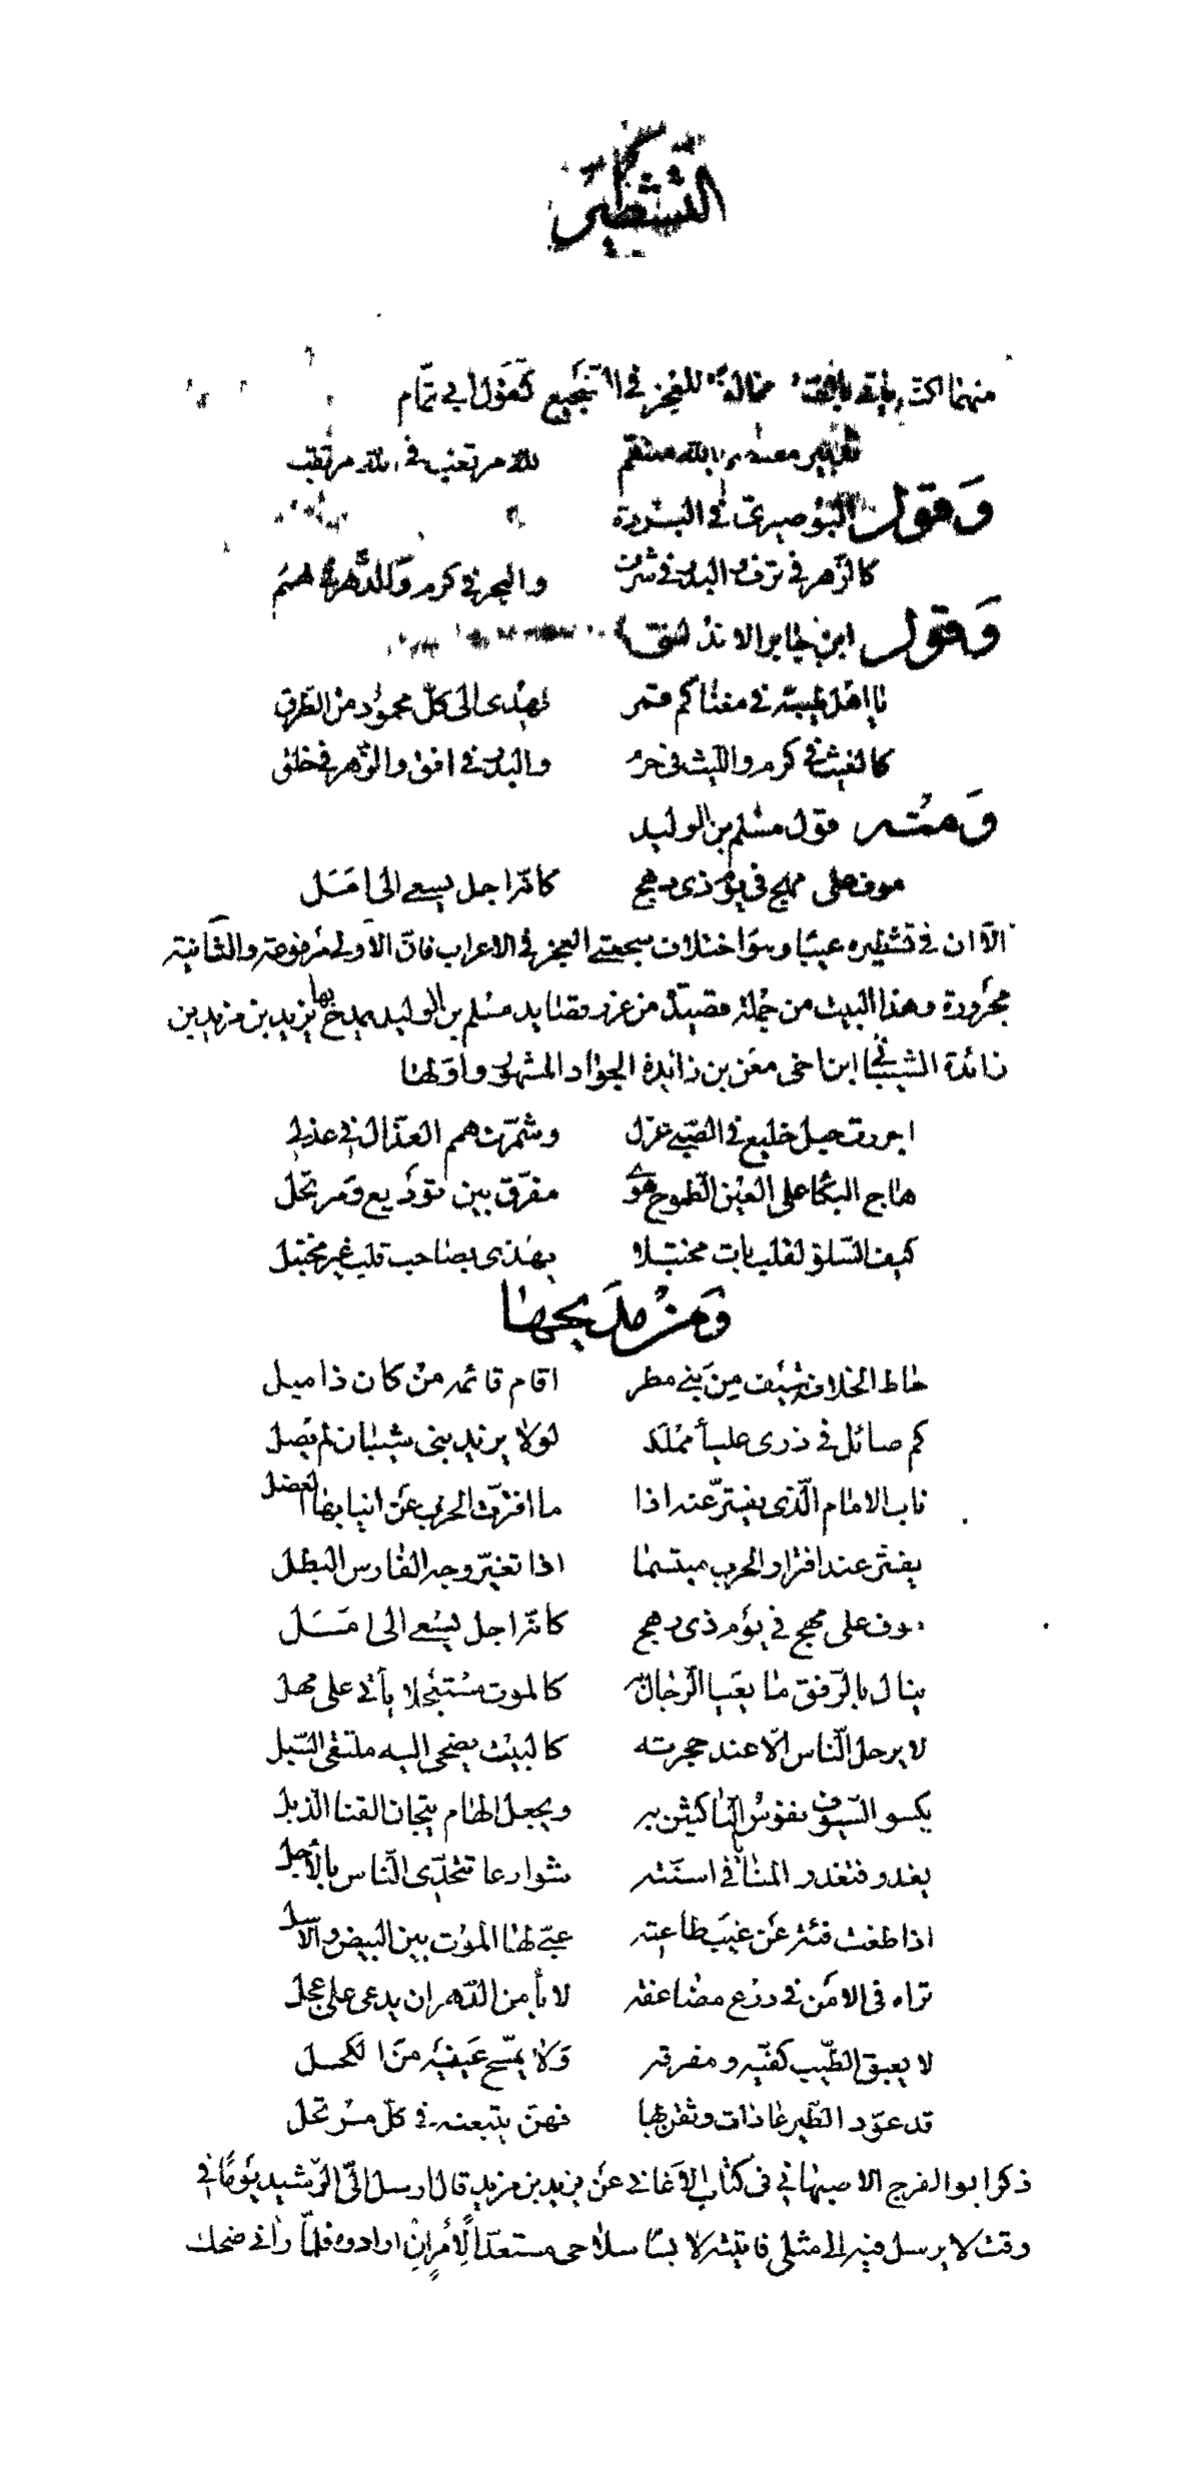 التشطير
منهما مخالفة للعجز في التسجيع كقول ابي تمام
تدبير معتصم بالله منتقم لله مرتغب في الله مرتقب
وقول البوصيري في البردة
كالزهر في ترف والبدر في شرف والبحر في كرم والدهر في همم
وقول ابن جابر الاندلسي
يا اهل طيبة في مغناكم قمر يهدى الى كل محمود من الطرق
كالغيث في كرم والليث في حرم والبدر في افق والزهر في خلق
ومنه قول مسلم بن الوليد
موف على مهج في يوم ذى رهج كانه اجل يسعى الى امل
الا ان في تشطيره عيبا وهو اختلاف سجعتي العجز في الاعراب فان الاولى مرفوعة والثانية
مجرورة وهذا البيت من جملة قصيدة من غرر قصايد مسلم بن الوليد يمدح بها يزيد بن مزيد بن
زائدة الشيباني ابن اخى معن بن زائدة الجواد المشهور واولها
اجررت حبل خليع في الصبى غزل وشمرت همم العذال في عذلي
هاج البكا على العين الطموح هوى مفرق بين توديع ومرتحل
كيف السلو لقلب بات مختبلا يهذى بصاحب قلب غير مختبل
ومن مديحها
حاط الخلافة سيف من بني مطر اقام قائمه من كان ذا ميل
كم صائل في ذرى علياء مملكة لولا يزيد بنى شيبان لم يصل
ناب الامام الذى يفتر عنه اذا ما افترت الحرب عن انيابها العضل
يفتر عند افترار الحرب مبتسما اذا تغير وجه الفارس البطل
موف على مهج في يوم ذى رهج كانه اجل يسعى الى امل
ينال بالرفق ما يعيا الرجال به كالموت مستعجلا يأتي على مهل
لا يرحل الناس الا عند حجرته كالبيت يضحى اليه ملتقى السبل
يكسو السيوف نفوس الناكثين به ويجعل الهام تيجان القنا الذبل
يغدو فتغدو المنايا في اسنته شوارعا تتحدى الناس بالأجل
اذا طغت فئة عن غيب طاعته عبى لها الموت بين البيض والاسل
تراه فى الامن في درع مضاعفة لا يأمن الدهر ان يدعى على عجل
لا يعبق الطيب كفيه ومفرقه ولا يمسح عينيه من الكحل
قد عود الطير عادات وثقن بها فهن يتبعنه في كل مرتحل
ذكر ابو الفرج الاصبهاني فى كتاب الاغاني عن يزيد بن مزيد قال ارسل الى الرشيد يوما في
وقت لا يرسل فيه الى مثلي فاتيته لابسا سلاحى مستعدا لأمر ان اراده فلما رآنى ضحك